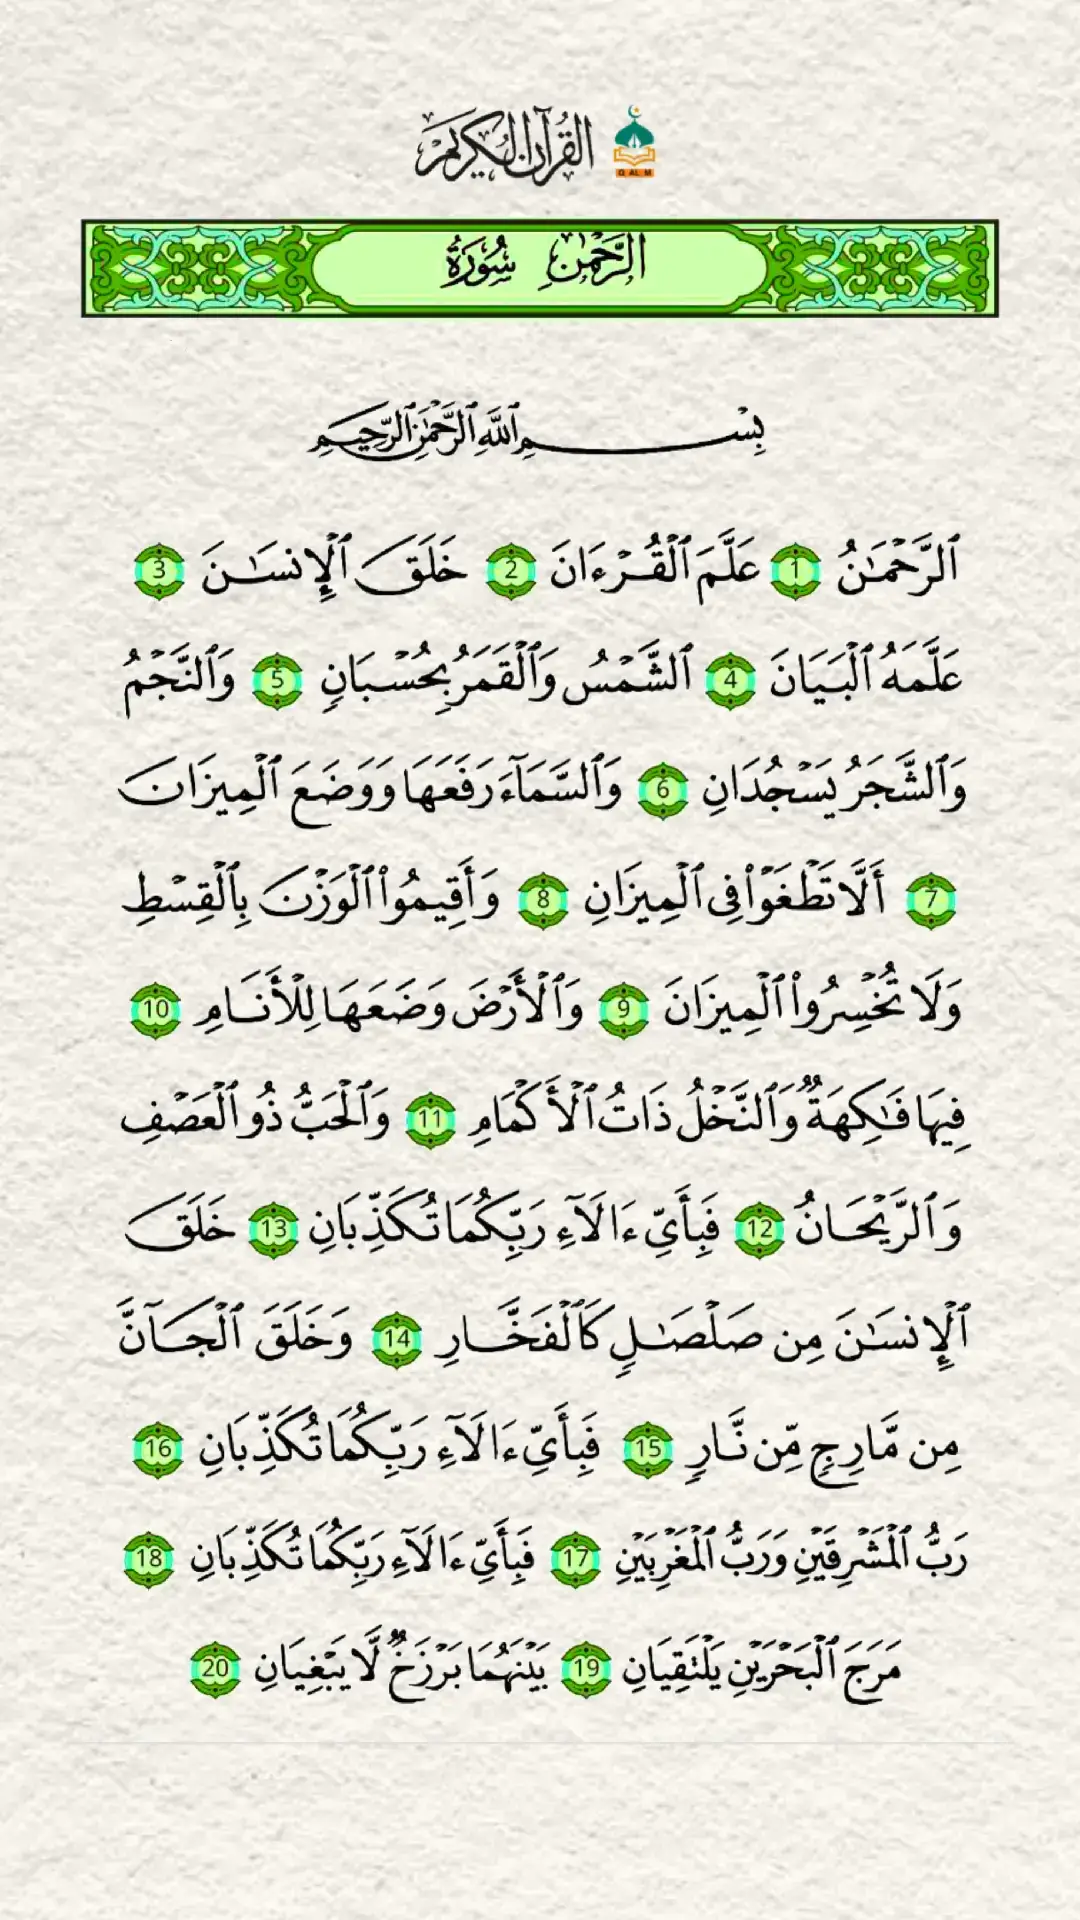 القرآن الكريم
QALM
الرَّحْمٰنِ سُورَةُ
بِسْمِ ٱللَّهِ ٱلرَّحْمَٰنِ ٱلرَّحِيمِ
ٱلرَّحْمَٰنُ 1 عَلَّمَ ٱلْقُرْءَانَ 2 خَلَقَ ٱلْإِنسَٰنَ 3
عَلَّمَهُ ٱلْبَيَانَ 4 ٱلشَّمْسُ وَٱلْقَمَرُ بِحُسْبَانٍ 5 وَٱلنَّجْمُ
وَٱلشَّجَرُ يَسْجُدَانِ 6 وَٱلسَّمَآءَ رَفَعَهَا وَوَضَعَ ٱلْمِيزَانَ
7 أَلَّا تَطْغَوْا۟ فِى ٱلْمِيزَانِ 8 وَأَقِيمُوا۟ ٱلْوَزْنَ بِٱلْقِسْطِ
وَلَا تُخْسِرُوا۟ ٱلْمِيزَانَ 9 وَٱلْأَرْضَ وَضَعَهَا لِلْأَنَامِ 10
فِيهَا فَٰكِهَةٌ وَٱلنَّخْلُ ذَاتُ ٱلْأَكْمَامِ 11 وَٱلْحَبُّ ذُو ٱلْعَصْفِ
وَٱلرَّيْحَانُ 12 فَبِأَىِّ ءَالَآءِ رَبِّكُمَا تُكَذِّبَانِ 13 خَلَقَ
ٱلْإِنسَٰنَ مِن صَلْصَٰلٍ كَٱلْفَخَّارِ 14 وَخَلَقَ ٱلْجَآنَّ
مِن مَّارِجٍ مِّن نَّارٍ 15 فَبِأَىِّ ءَالَآءِ رَبِّكُمَا تُكَذِّبَانِ 16
رَبُّ ٱلْمَشْرِقَيْنِ وَرَبُّ ٱلْمَغْرِبَيْنِ 17 فَبِأَىِّ ءَالَآءِ رَبِّكُمَا تُكَذِّبَانِ 18
مَرَجَ ٱلْبَحْرَيْنِ يَلْتَقِيَانِ 19 بَيْنَهُمَا بَرْزَخٌ لَّا يَبْغِيَانِ 20